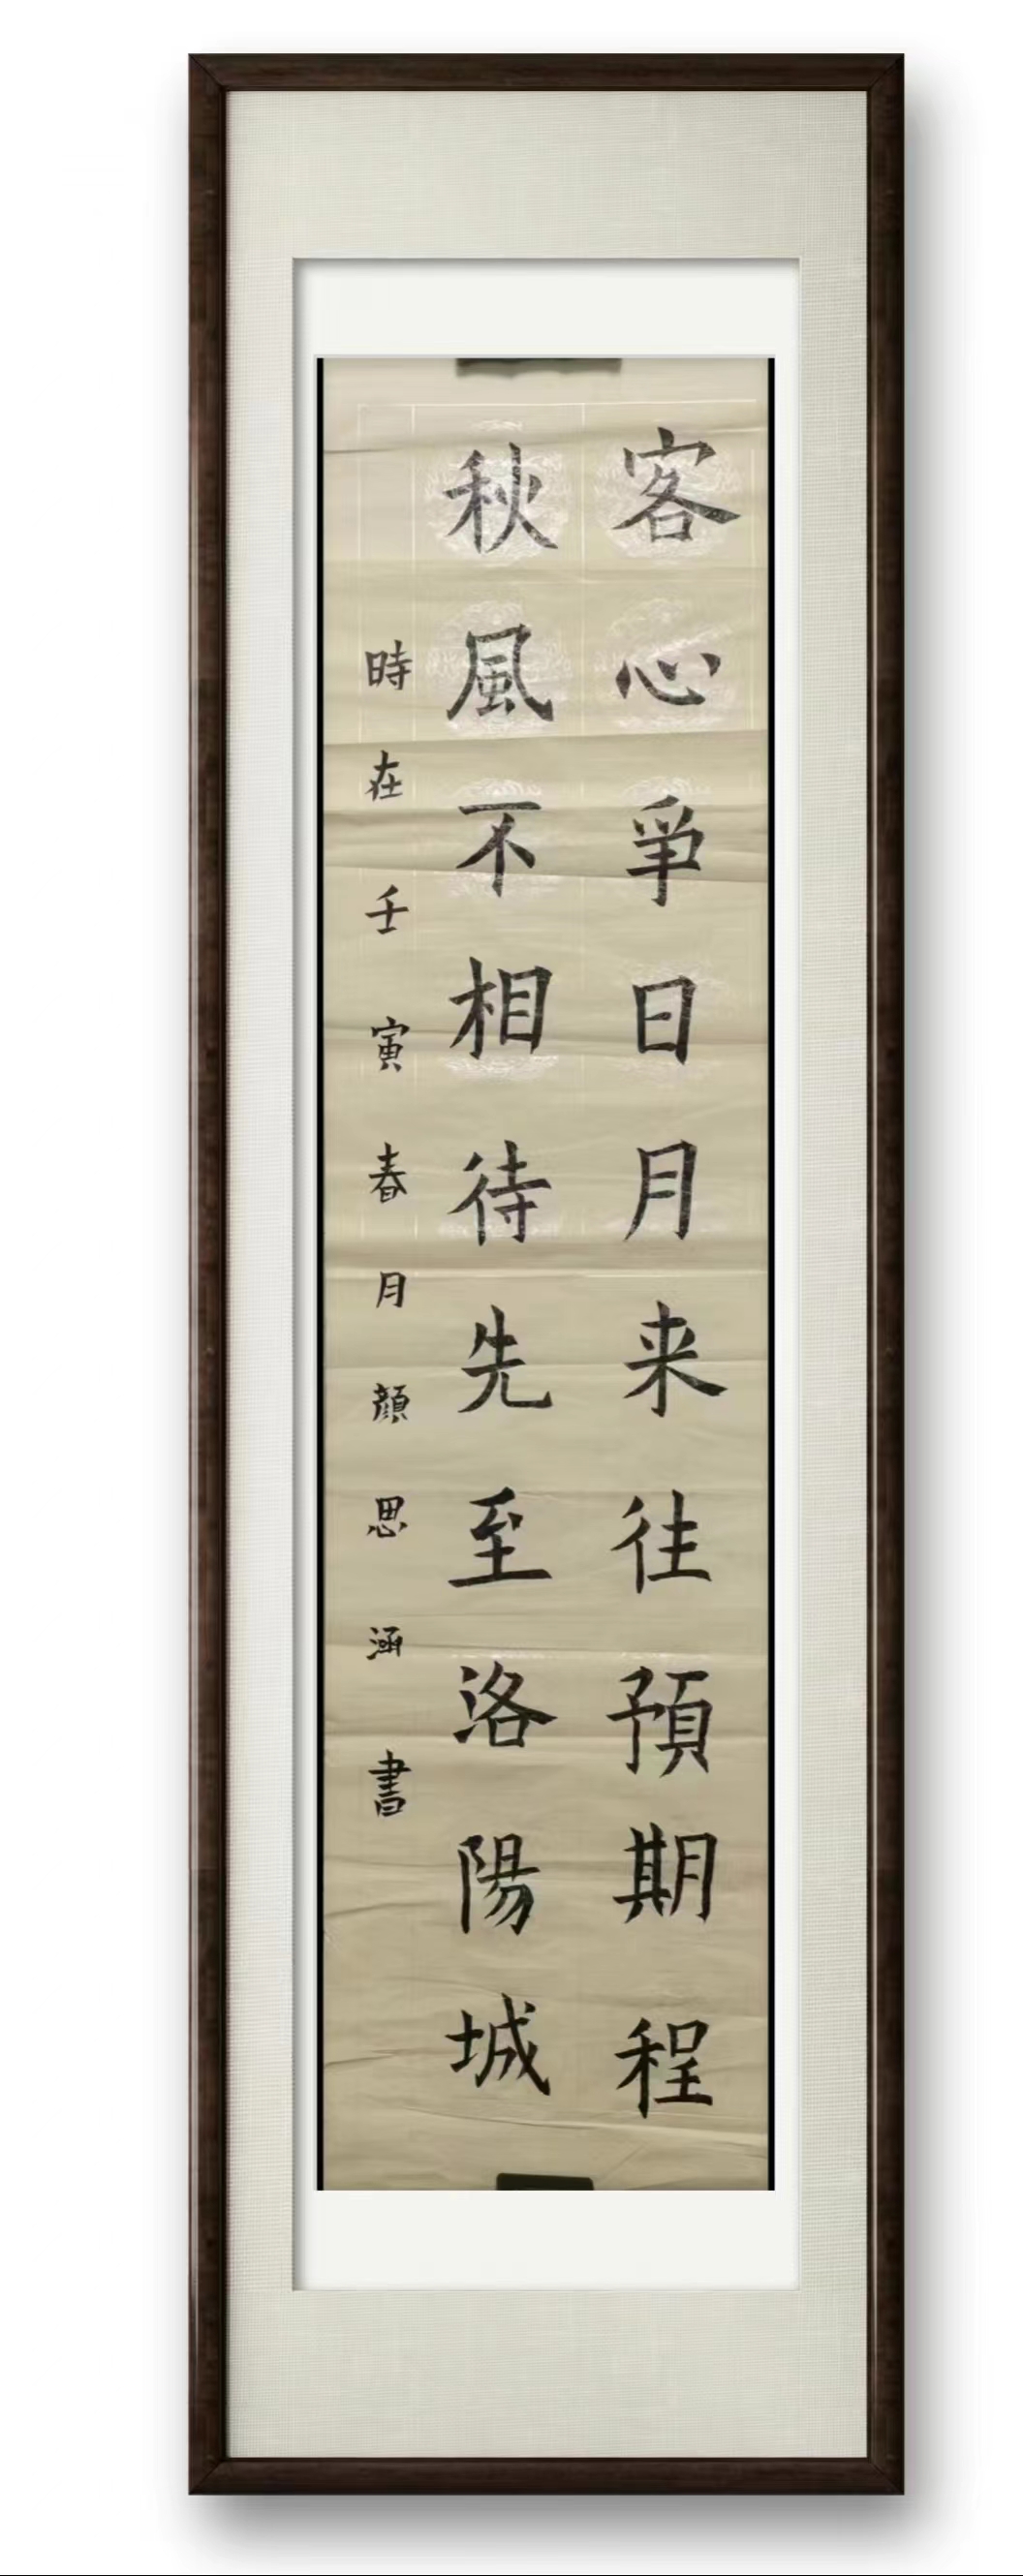 客心爭日月来往預期程
秋風不相待先至洛陽城
時在壬寅春月顔思涵書